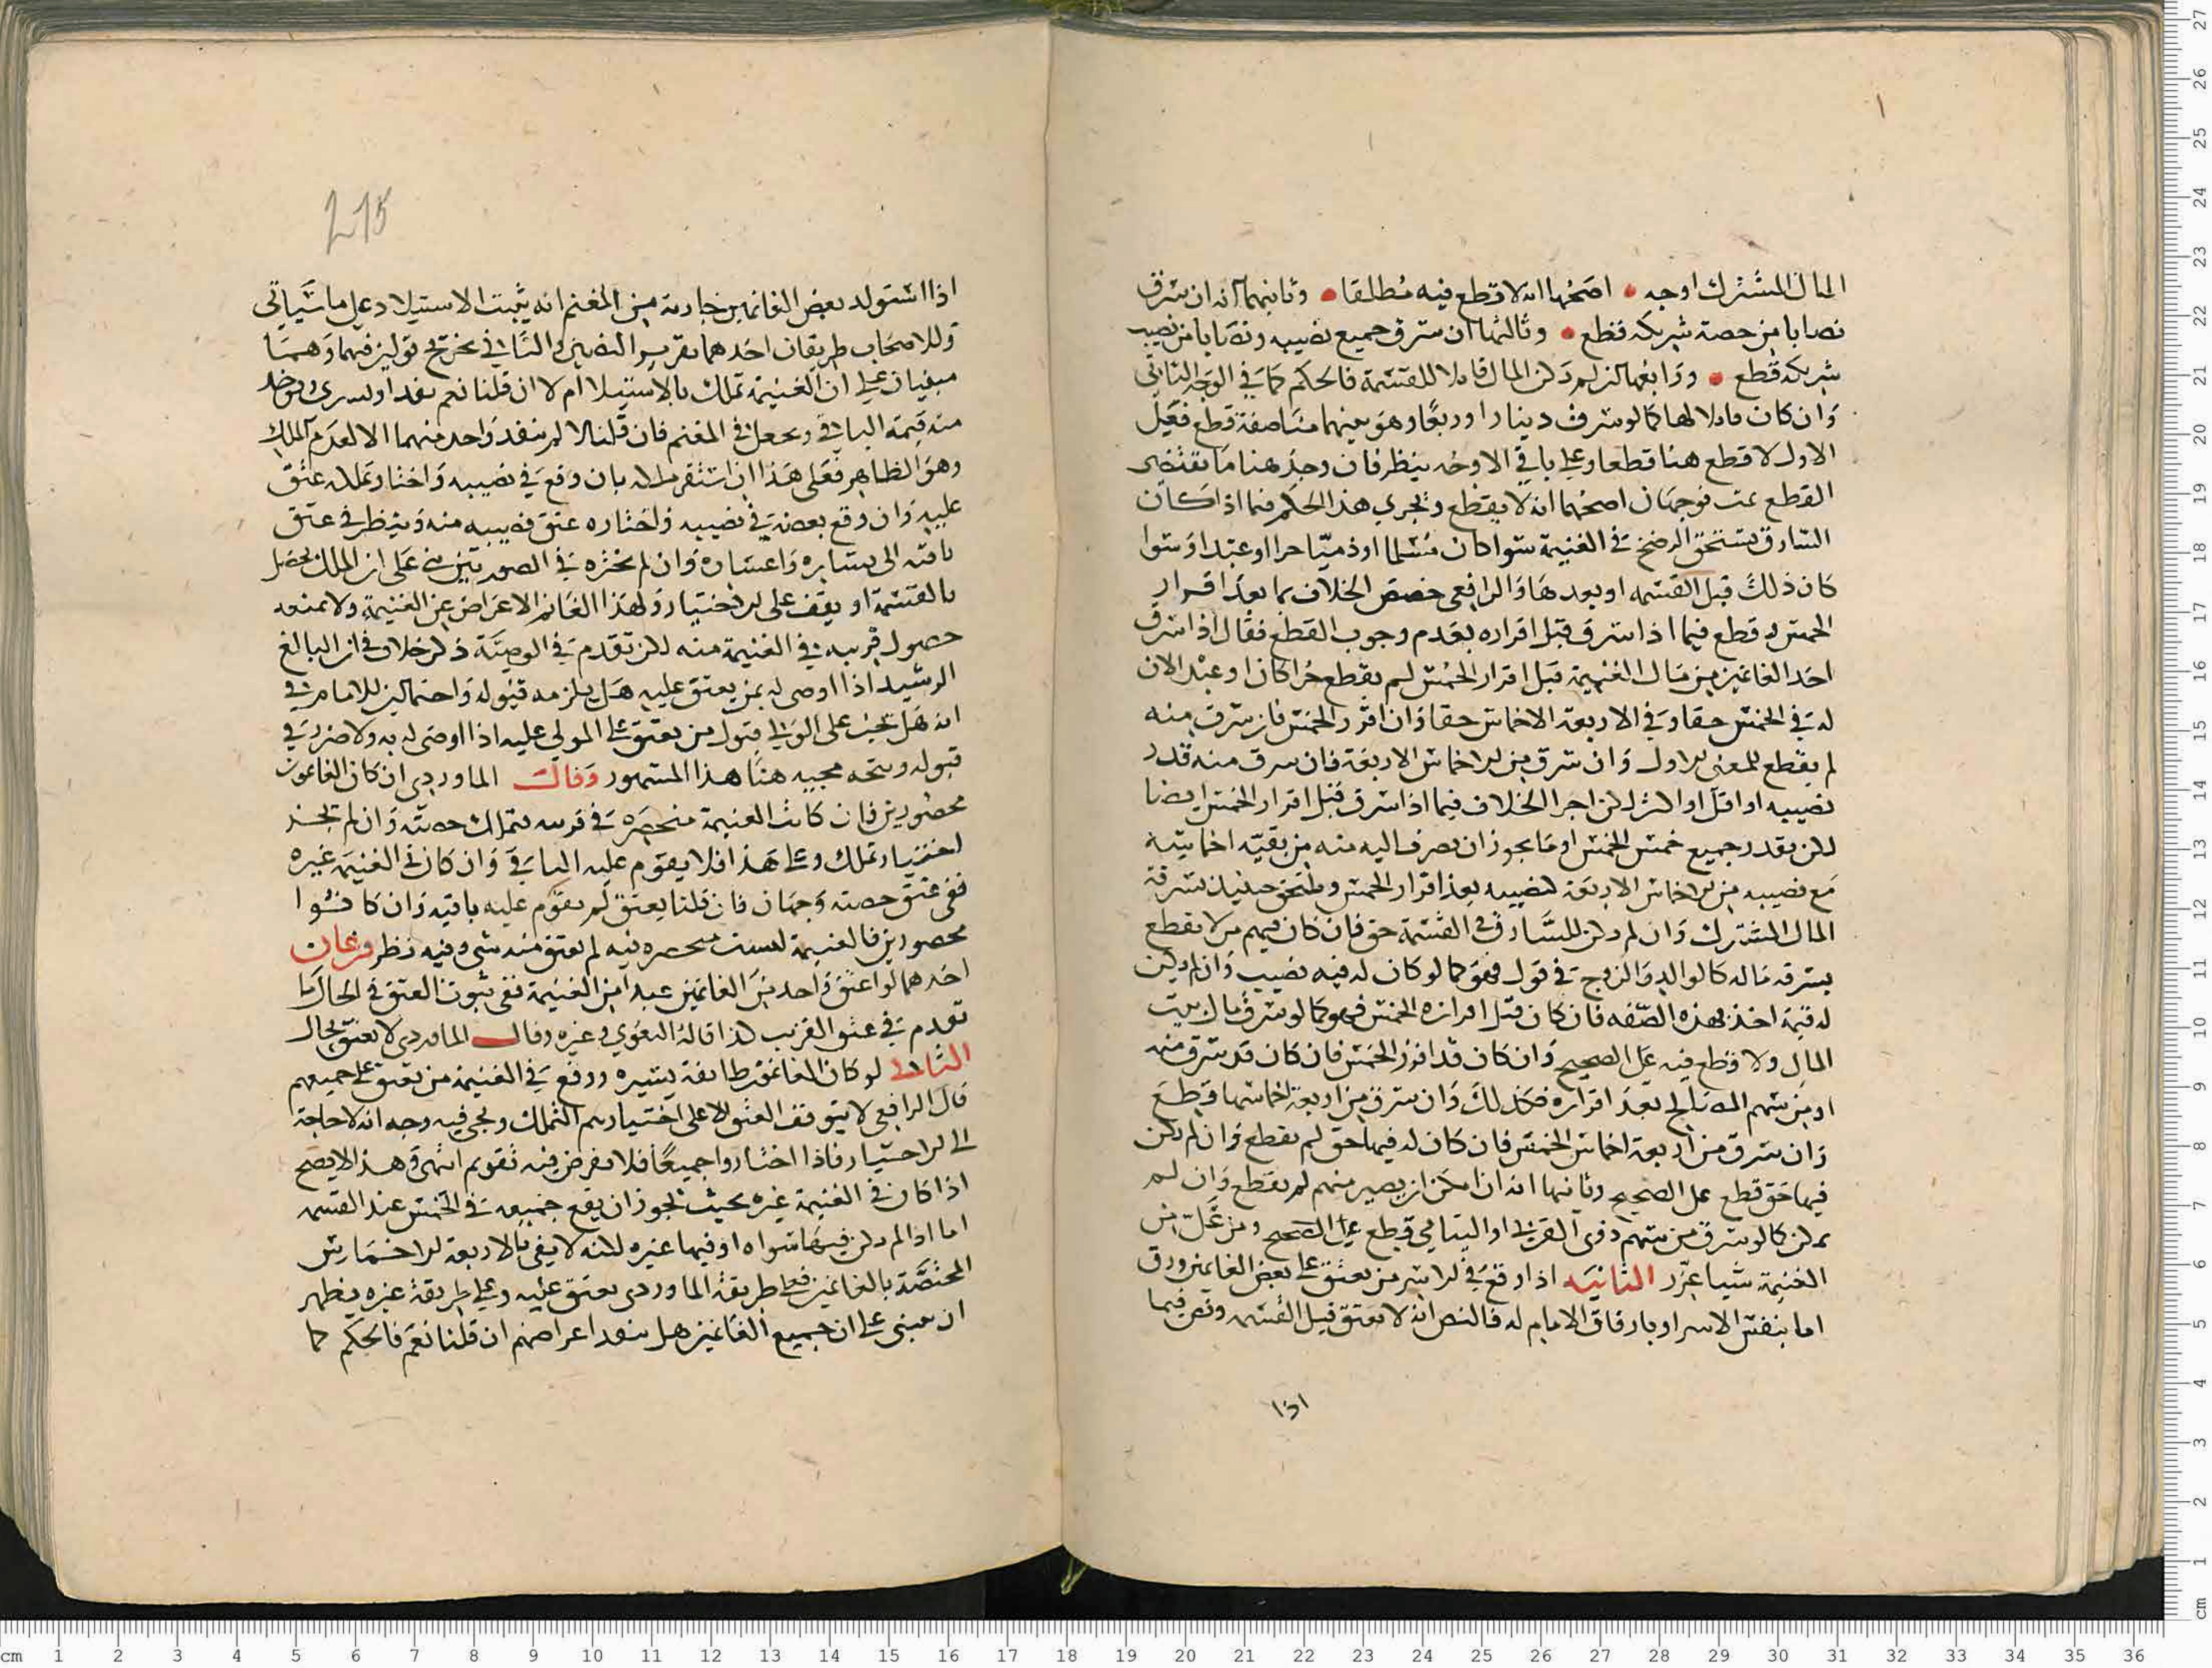 المال المشترك اوجه اصحها انه لا قطع فيه مطلقا وثانيها انه ان سرق
نصابا من حصة شريكه قطع وثالثها ان سرق جميع نصيبه ونصابا من نصيب
شريكه قطع ورابعها ان لم يكن المال قابلا للقسمة فالحكم كما في الوجه الثاني
وان كان قابلا لها كما لو سرق دينارا وربعا وهو بينهما مناصفة قطع فعلى
الاول لا قطع هنا قطعا وعلى باقي الاوجه ينظر فان وجد هنا ما يقتضى
القطع ثمت فوجهان اصحهما انه لا يقطع ويجري هذا الحكم فيما اذا كان
السارق يستحق الرضخ في الغنيمة سوا كان مسلما او ذميا حرا او عبدا وسوا
كان ذلك قبل القسمه او بعدها والرافعى خصص الخلاف بما بعد افراز
الخمس وقطع فيما اذا سرق قبل افرازه بعدم وجوب القطع فقال اذا سرق
احد الغانمين من مال الغنيمة قبل افراز الخمس لم يقطع حرا كان او عبدا لان
له في الخمس حقا وفي الاربعة الاخماس حقا وان افرز الخمس فان سرق منه
لم يقطع للمعنى الاول وان سرق من الاخماس الاربعة فان سرق منه قدر
نصيبه او اقل او اكثر لكن اجرا الخلاف فيما اذا سرق قبل افراز الخمس ايضا
لكن بقدر جميع خمس الخمس او ما يجوز ان يصرف اليه منه من بقية اخماسه
مع نصيبه من الاخماس الاربعة كنصيبه بعد افراز الخمس ويلتحق حينئذ بسرقة
المال المشترك وان لم يكن للسارق في القسمة حق فان كان فيهم من لا يقطع
بسرقه ماله كالوالد والزوج في قول فهو كما لو كان له فيه نصيب وان لم يكن
له فيه احد بهذه الصفه فان كان قبل افرازه الخمس فهو كما لو سرق مال بيت
المال ولا قطع فيه على الصحيح وان كان قد افرز الخمس فان كان قد سرق منه
او من سهم المصالح بعد افرازه فكذلك وان سرق من اربعة اخماسها قطع
وان سرق من اربعة اخماس الخمس فان كان له فيها حق لم يقطع وان لم يكن
فيها حق قطع على الصحيح وثانيها انه ان امكن ان يصير منهم لم يقطع وان لم
يمكن كما لو سرق من سهم ذوى القربى او اليتامى قطع على الصحيح ومن غل من
الغنيمة شيا عزر الثانيه اذا وقع في الاسر من يعتق على بعض الغانمين ورق
اما بنفس الاسر او بارقاق الامام له فالنص انه لا يعتق قبل القسمه ونص فيما
اذا
215
اذا استولد بعض الغانمين جارية من المغنم انه يثبت الاستيلاد على ما سياتي
وللاصحاب طريقان احدهما تقرير النصين والثاني تخريج قولين فيهما وهما
مبنيان على ان الغنيمة تملك بالاستيلا ام لا ان قلنا نعم نفدا وليسرى ويوخذ
منه قيمة الباقى وتجعل في المغنم فان قلنا لا لم ينفد واحد منهما الا لعدم الملك
وهو الظاهر فعلى هذا ان استقر ملكه بان وقع في نصيبه واختار تملكه عتق
عليه وان وقع بعضه في نصيبه واختاره عتق نصيبه منه وينظر في عتق
باقيه الى يساره واعساره وان لم يختره في الصورتين بنى على ان الملك يحصل
بالقسمة او يقف على الاختيار ولهذا الغانم الاعراض عن الغنيمة ولا يمنعه
حصول قريبه في الغنيمة منه لكن تقدم في الوصية ذكر خلاف في ان البالغ
الرشيد اذا اوصى له بمن يعتق عليه هل يلزمه قبوله واحتمالين للامام في
انه هل يجب على الولي قبول من يعتق على المولى عليه اذا اوصى له به ولا ضرر في
قبوله ويتجه مجيبه هنا هذا المشهور وقال الماوردى ان كان الغانمون
محصورين فان كانت الغنيمة منحصره في قريبه تملك حصته وان لم يجز
اختيار تملك وعلى هذا فلا يقوم عليه الباقى وان كان في الغنيمة غيره
ففى عتق حصته وجهان فان قلنا يعتق لم يقوم عليه باقيه وان كانوا
محصورين فالغنيمة ليست منحصره فيه لم يعتق منه شى وفيه نظر فرعان
احدهما لو اعتق واحد من الغانمين عبدا من الغنيمة ففى ثبوت العتق في الحال ما
تقدم في عتق القريب كذا قاله البغوي وغيره وقال الماوردي لا يعتق بحال
الثاني لو كان الغانمون طايفة يسيره ووقع في الغنيمة من يعتق على جميعهم
قال الرافعى لا يتوقف العتق الا على اختيارهم التملك ويجى فيه وجه انه لا حاجة
الى الاختيار فاذا اختاروا جميعا فلا نفرض فيه تقويم انتهى وهذا لا يصح
اذا كان في الغنيمة غيره بحيث يجوز ان يقع جميعه في الخمس عند القسمه
اما اذا لم يكن فيها سواه او فيها غيره لكنه لا يفي بالاربعة الاخماس
المختصة بالغانمين فعلى طريقة الماوردي يعتق عليه وعلى طريقة غيره يظهر
انه مبنى على ان جميع الغانمين هل ينفد اعراضهم ان قلنا نعم فالحكم كما